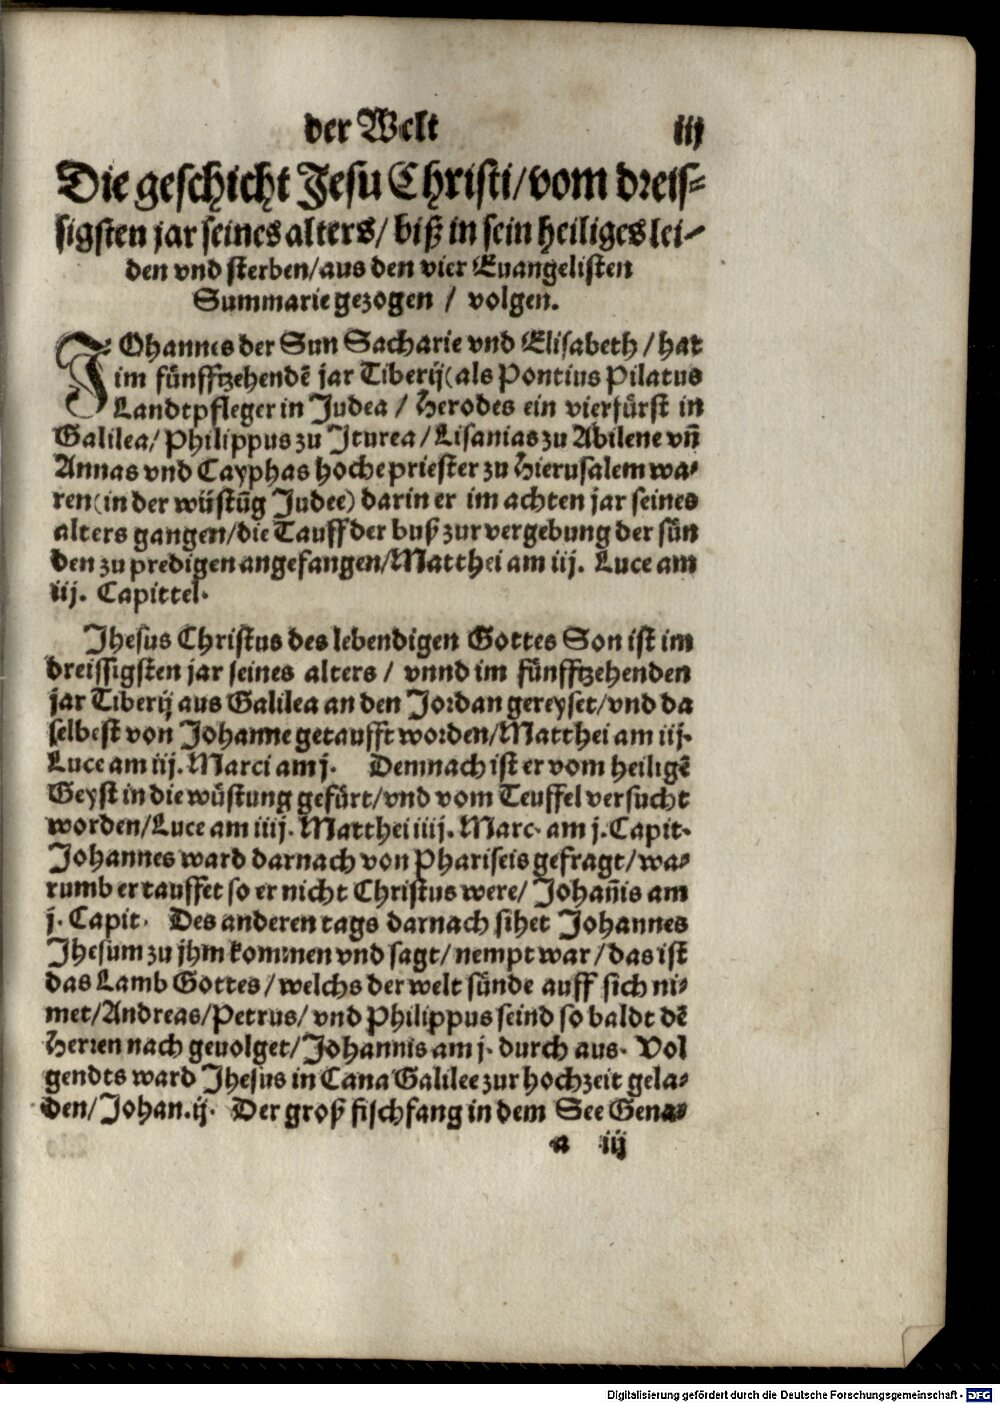 der Welt iij
Die geschicht Jesu Christi/vom dreis-
sigsten jar seines alters/ biß in sein heiliges lei-
den vnd sterben/aus den vier Euangelisten
Summarie gezogen / volgen.
JOhannes der Sun Sacharie vnd Elisabeth/hat
im fünfftzehendē jar Tiberij(als Pontius Pilatus
Landtpfleger in Judea / Herodes ein vierfürst in
Galilea/Philippus zu Iturea/Lisanias zu Abilene vñ
Annas vnd Cayphas hoche priester zu Hierusalem wa-
ren(in der wüstūg Judee) darin er im achten jar seines
alters gangen/die Tauff der buß zur vergebung der sün
den zu predigen angefangen/Matthei am iij. Luce am
iij. Capittel.
Jhesus Christus des lebendigen Gottes Son ist im
dreissigsten jar seines alters / vnnd im fünfftzehenden
jar Tiberij aus Galilea an den Jordan gereyset/vnd da
selbest von Johanne getaufft worden/Matthei am iij.
Luce am iij. Marci am j. Demnach ist er vom heiligē
Geyst in die wüstung gefürt/vnd vom Teuffel versucht
worden/Luce am iiij. Matthei iiij. Marc. am j. Capit.
Johannes ward darnach von Phariseis gefragt/wa-
rumb er tauffet so er nicht Christus were/ Johañis am
j. Capit. Des anderen tags darnach sihet Johannes
Jhesum zu jhm kommen vnd sagt/nempt war/das ist
das Lamb Gottes/welchs der welt sünde auff sich ni-
met/Andreas/Petrus/ vnd Philippus seind so baldt dē
Herren nach geuolget/Johannis am j. durch aus. Vol
gendts ward Jhesus in Cana Galilee zur hochzeit gela-
den/Johan.ij. Der groß fischfang in dem See Gena-
a iij
Digitalisierung gefördert durch die Deutsche Forschungsgemeinschaft - DFG